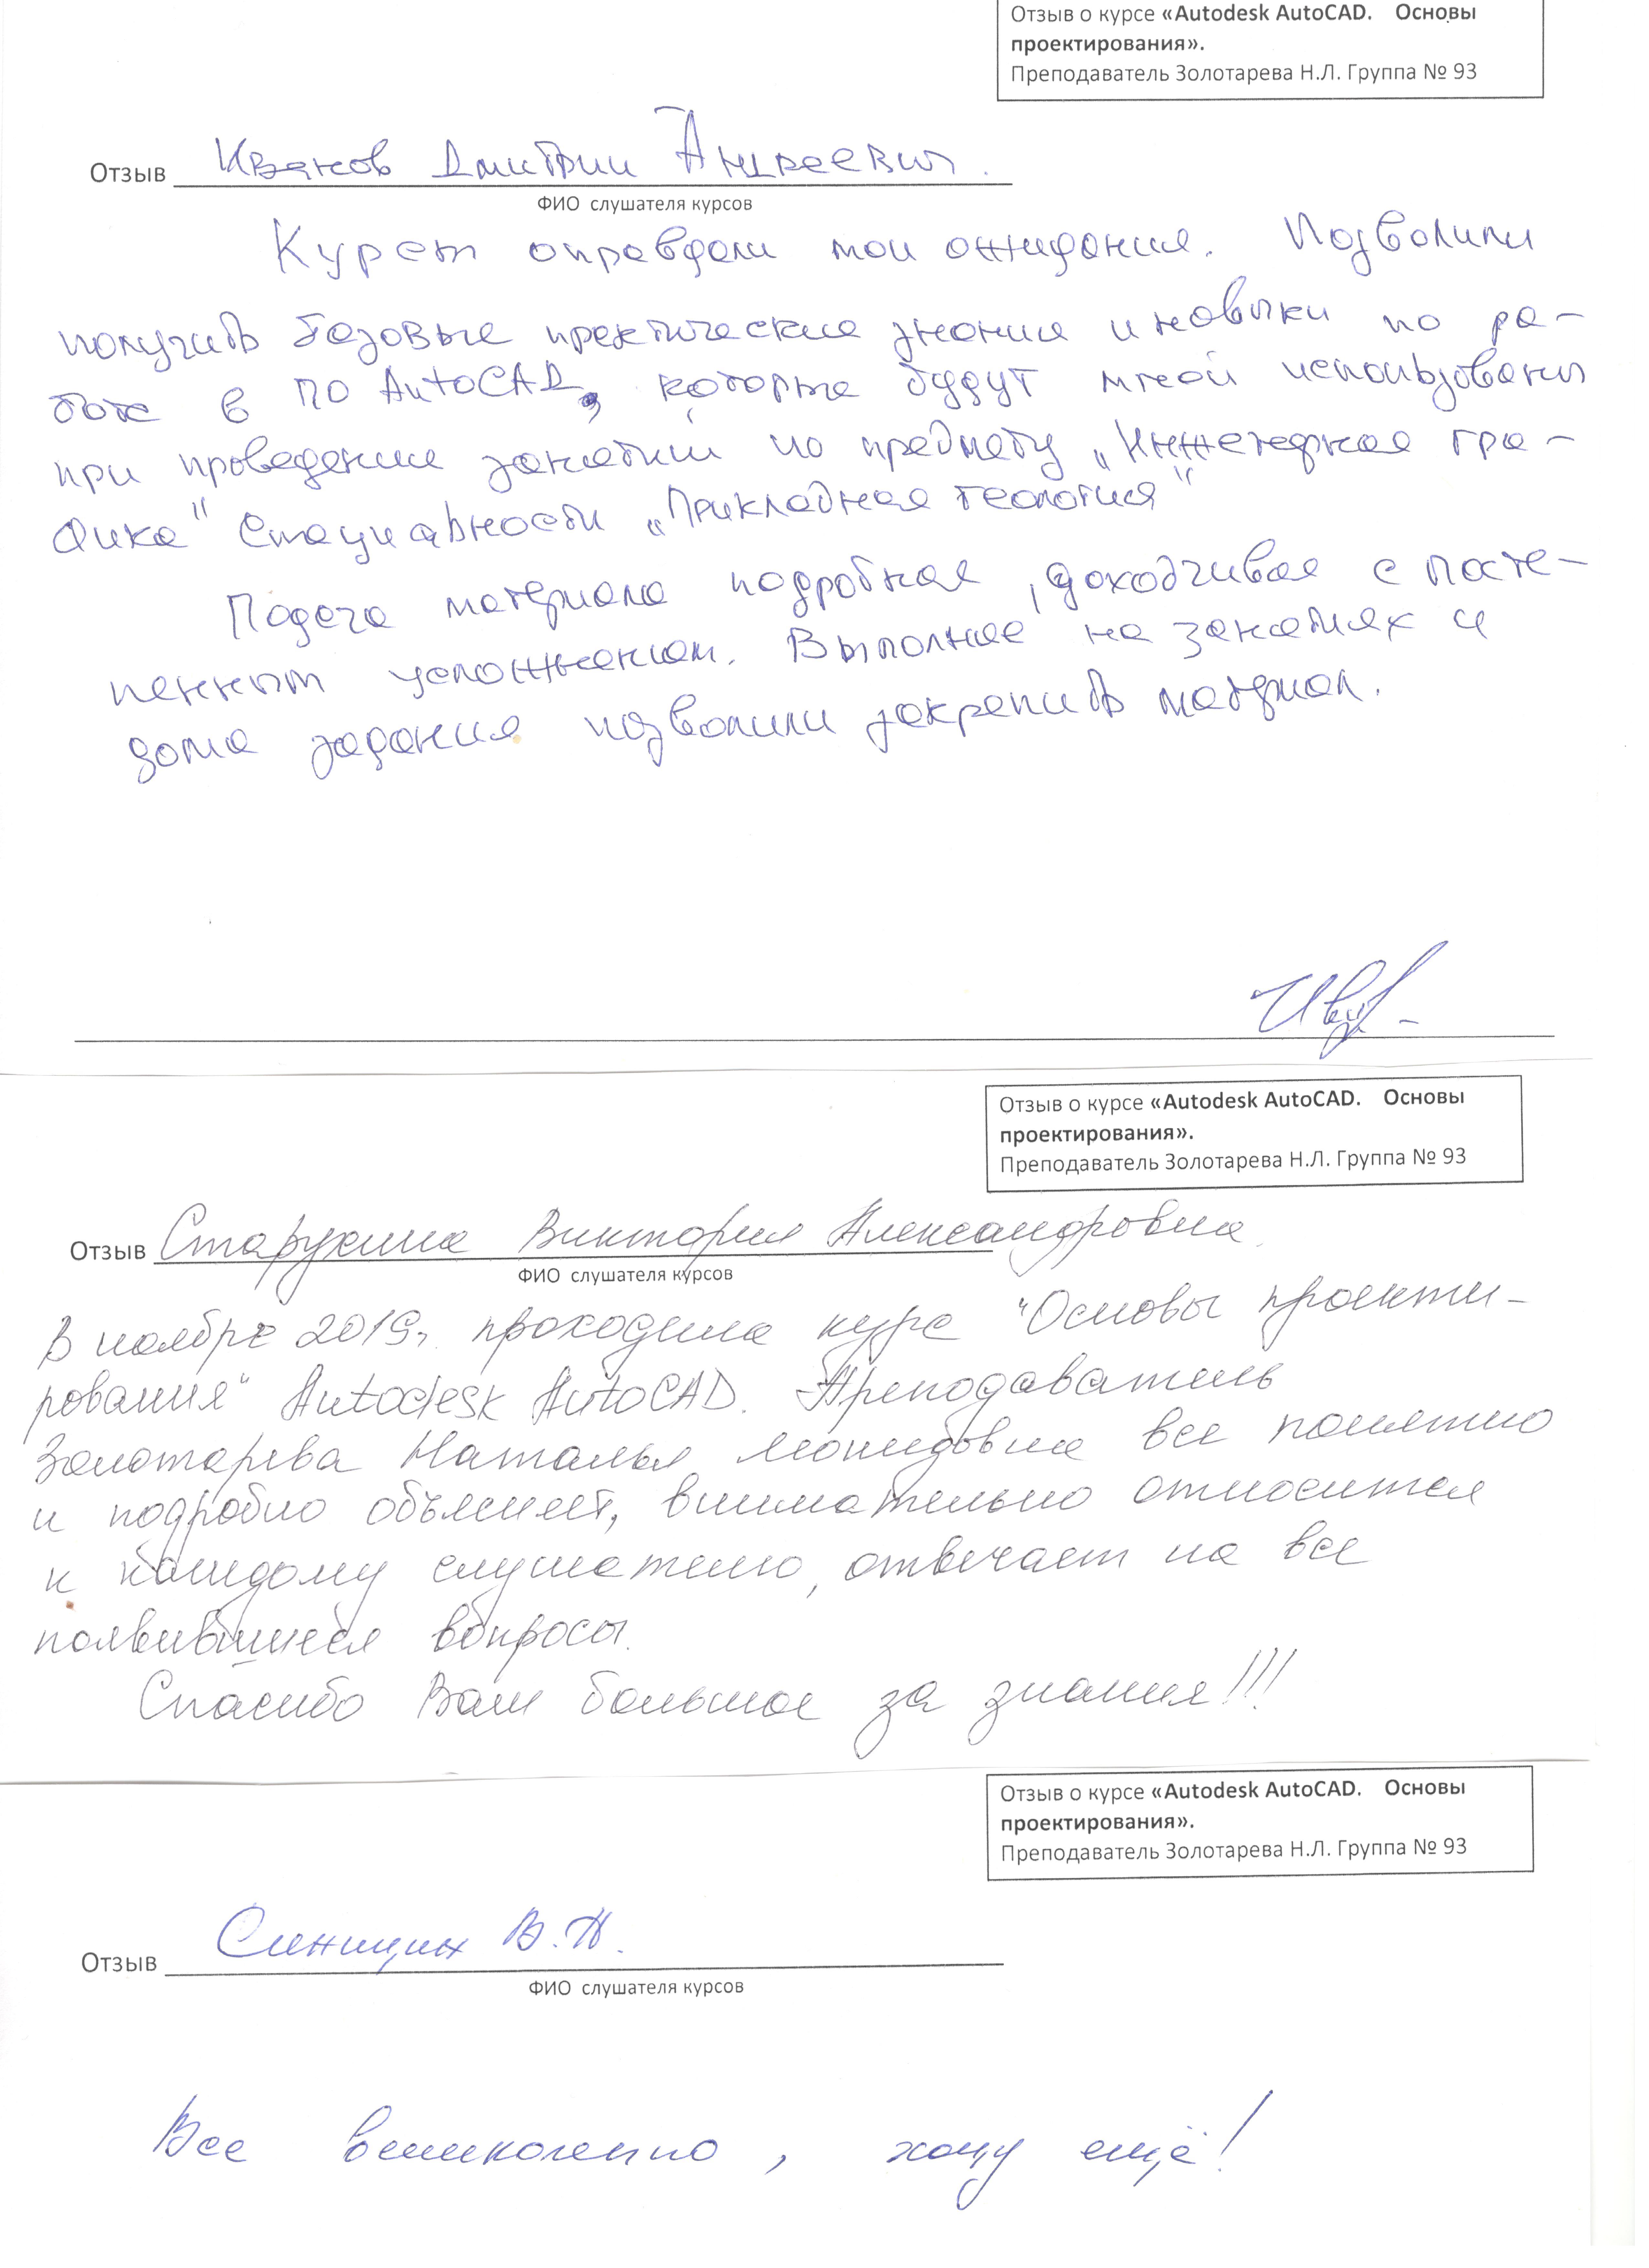 Отзыв о курсе «Autodesk AutoCAD. Основы
проектирования».
Преподаватель Золотарева Н.Л. Группа № 93
Отзыв Иванов Дмитрий Андреевич.
ФИО слушателя курсов
Курсы оправдали мои ожидания. Позволили
получить базовые практические знания и навыки по ра-
боте в ПО AutoCAD, которые будут мной использованы
при проведении занятий по предмету „Инженерная гра-
фика" специальности „Прикладная геология"
Подача материала подробная, доходчивая с посте-
пенным усложнением. Выполнные на занятиях и
дома задания позволили закрепить материал.
Отзыв о курсе «Autodesk AutoCAD. Основы
проектирования».
Преподаватель Золотарева Н.Л. Группа № 93
Отзыв Старухина Виктория Александровна
ФИО слушателя курсов
В ноябре 2019г. проходила курс "Основы проекти-
рования" Autodesk AutoCAD. Преподаватель
Золотарева Наталья Леонидовна все понятно
и подробно объясняет, внимательно относится
к каждому слушателю, отвечает на все
появившиеся вопросы.
Спасибо Вам большое за знания!!!
Отзыв о курсе «Autodesk AutoCAD. Основы
проектирования».
Преподаватель Золотарева Н.Л. Группа № 93
Отзыв Синицин В.П.
ФИО слушателя курсов
Все великолепно, хочу ещё!